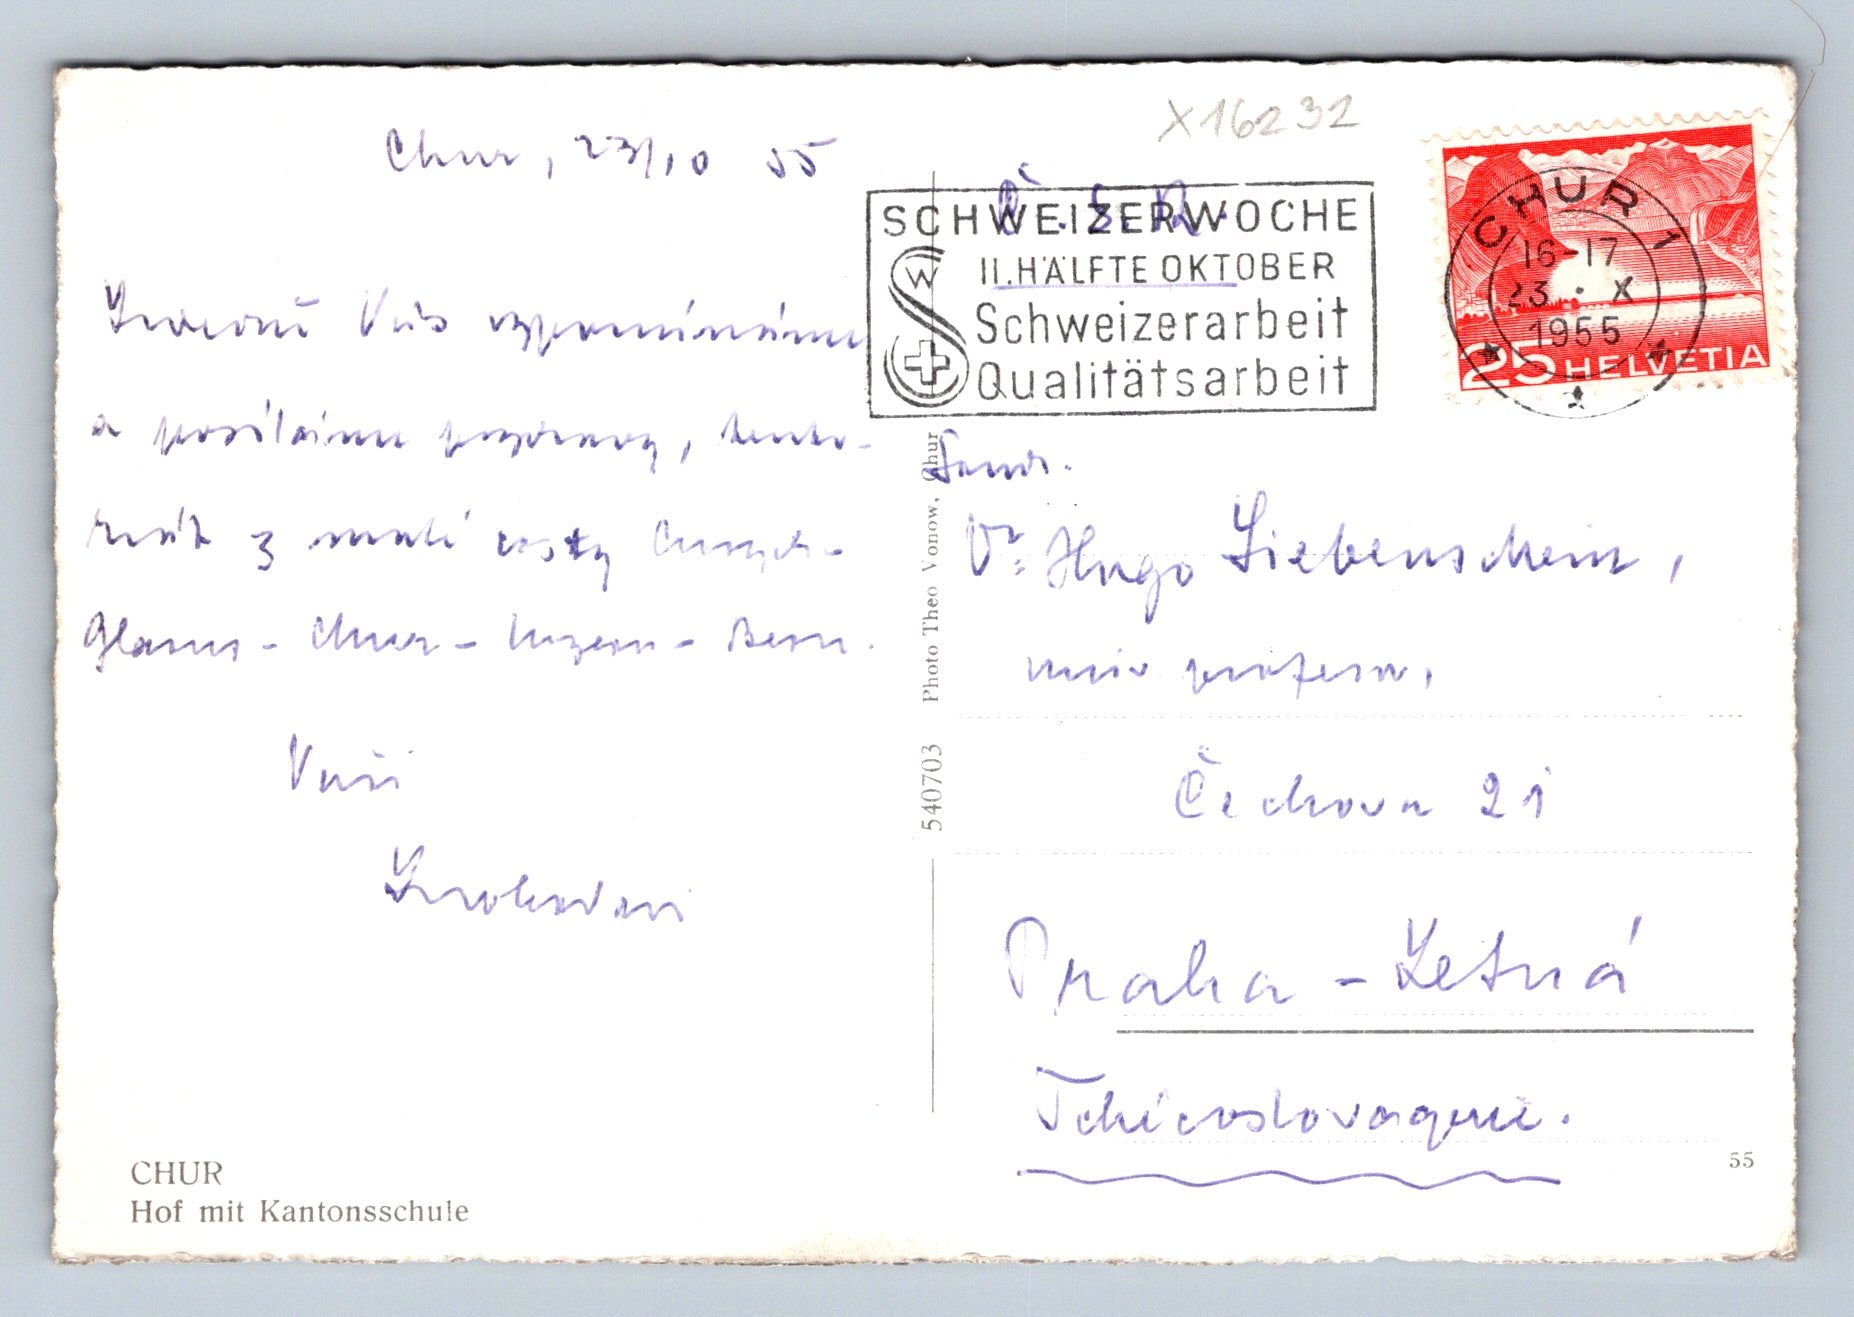 X16232
Chur, 23/10 55
Č.S.R.
SCHWEIZERWOCHE
II. HÄLFTE OKTOBER
Schweizerarbeit
Qualitätsarbeit
W
CHUR 1
16-17
23.X
1955
25 HELVETIA
Vás vzpomínáme
a posíláme pozdravy, tento-
krát z malé cesty
Glarus - Chur - Luzern - Bern.
Vaši
Dr. Hugo Liebenschein,
univ. profesor,
Čechova 21
Praha - Letná
Tchécoslovaquie.
540703 Photo Theo Vonow, Chur
CHUR
Hof mit Kantonsschule
55